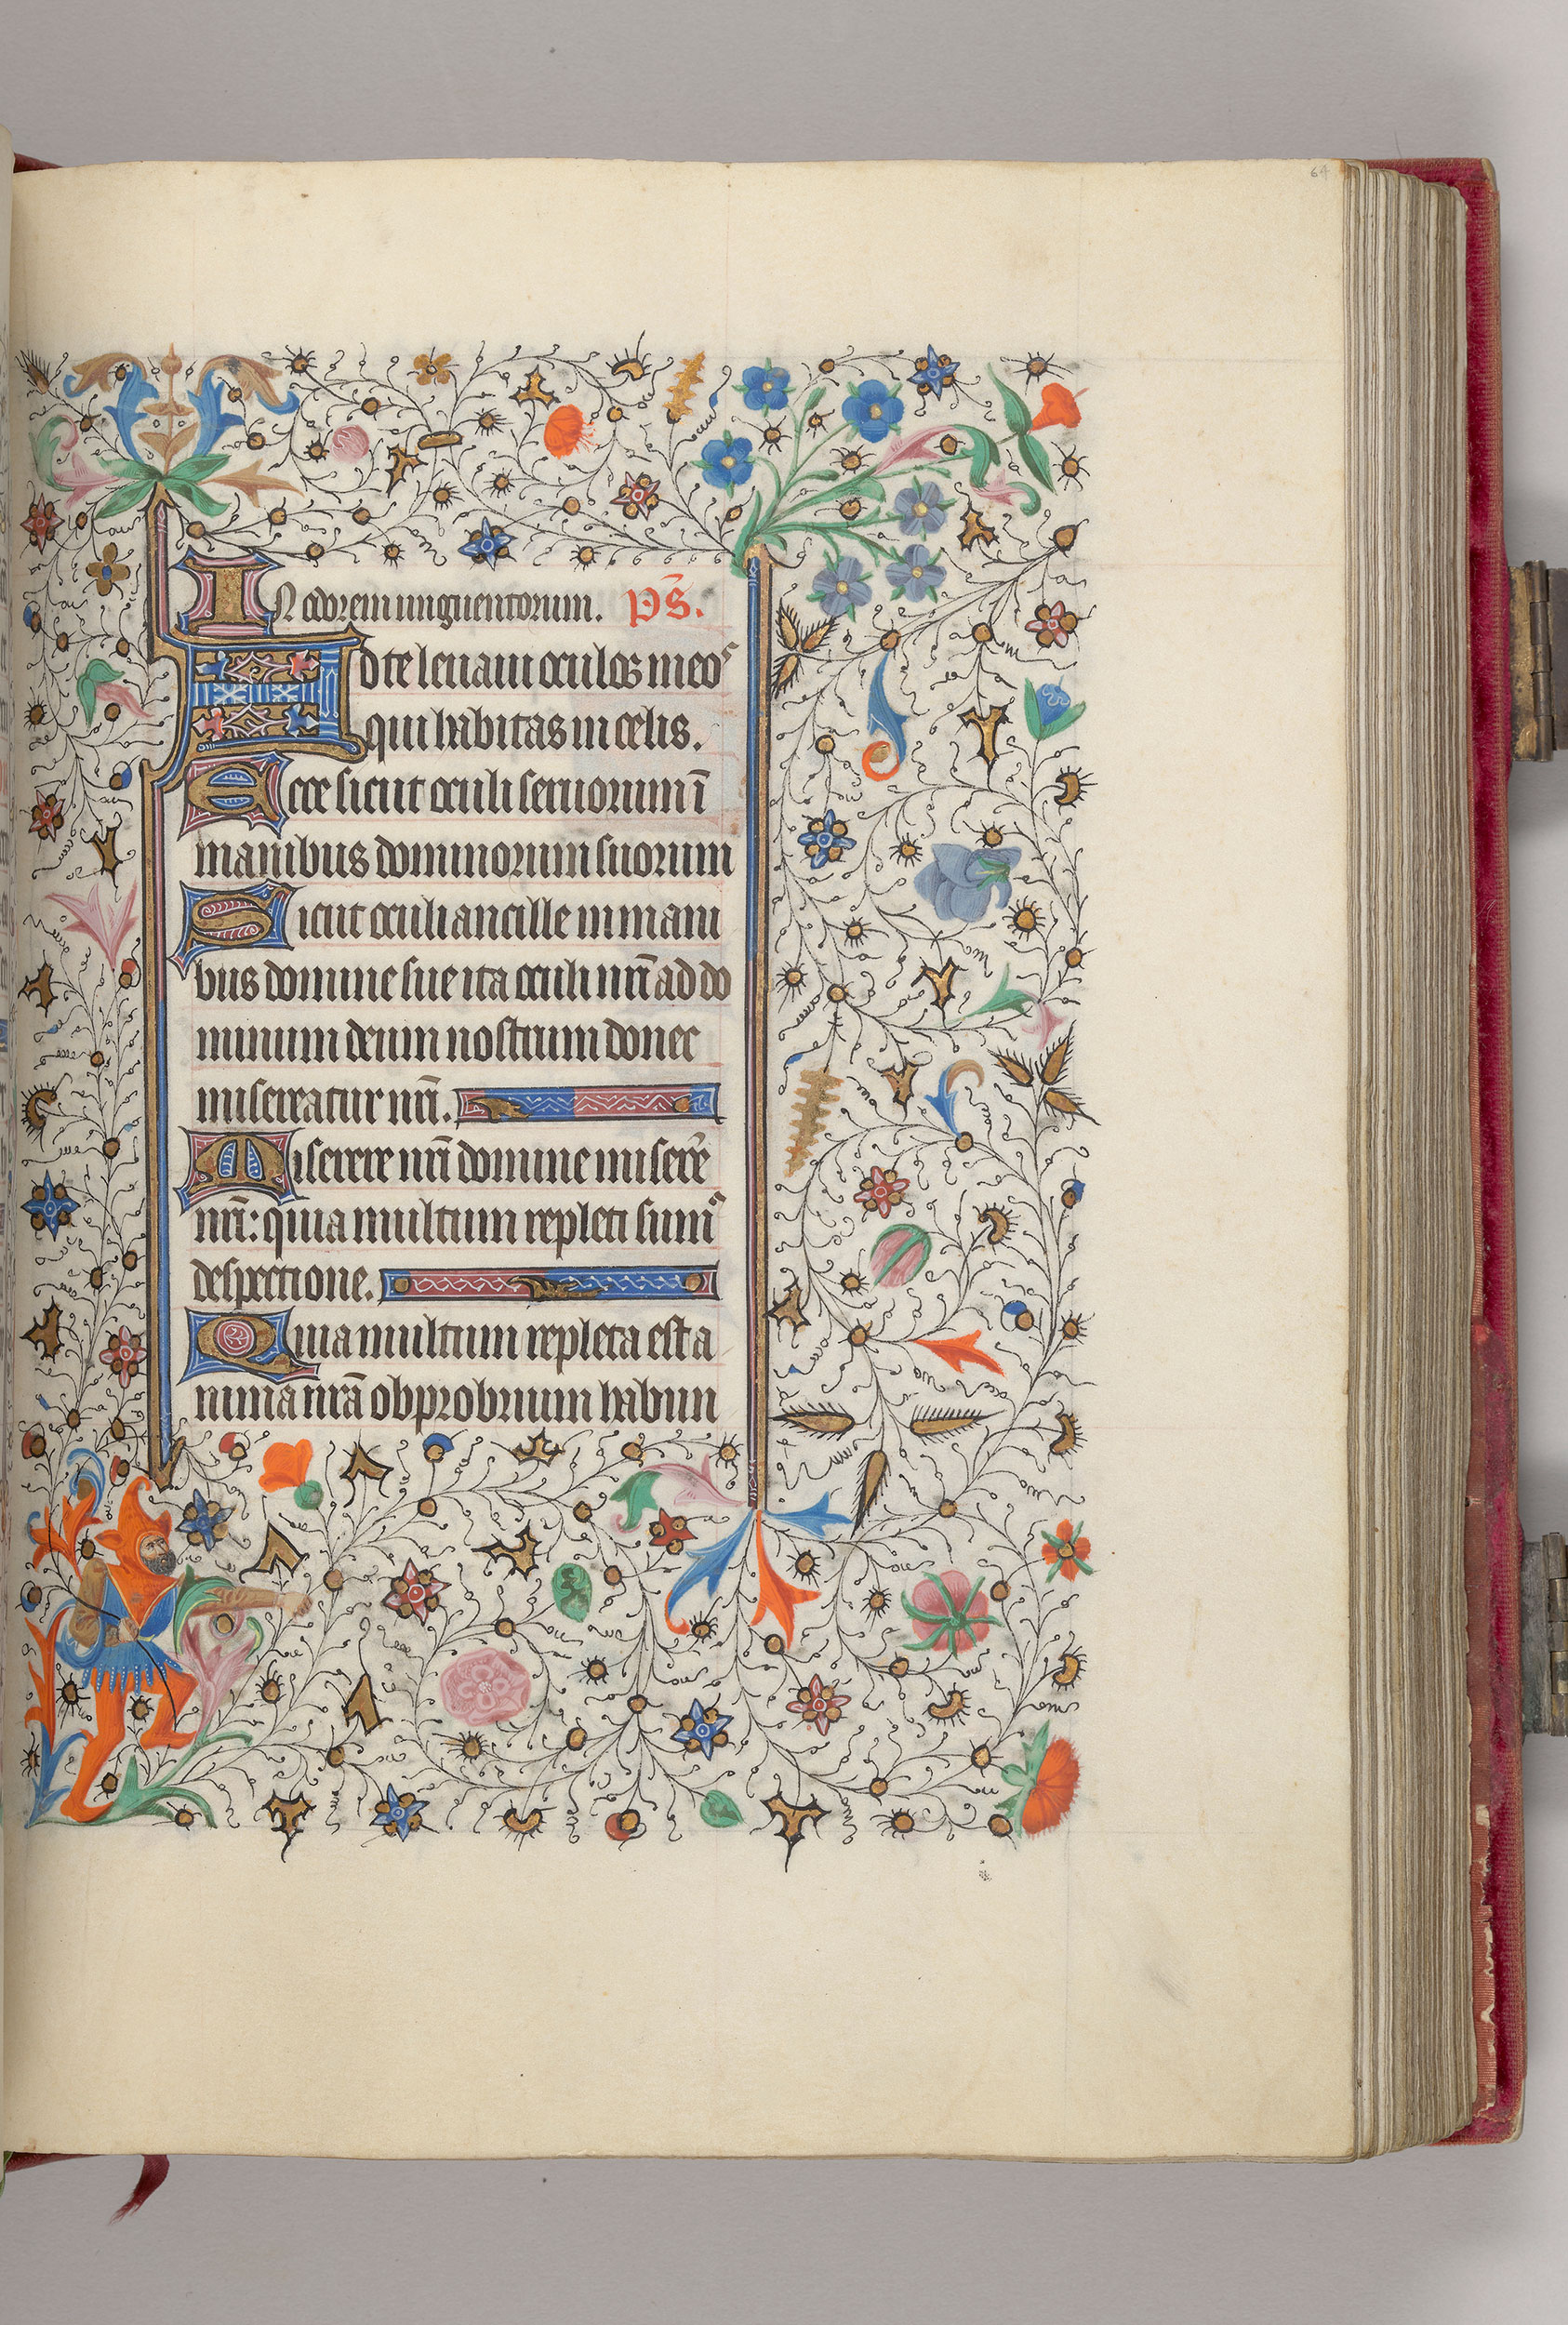 64
IN odorem unguentorum. ps̄.
Ad te levavi oculos meoˢ
qui habitas in celis.
Ecce sicut oculi servorum ī
manibus dominorum suorum
Sicut oculi ancille in mani
bus domine sue ita oculi nr̄i ad do
minum deum nostrum donec
misereatur nr̄i.
Miserere nr̄i domine misere̅
nr̄i: quia multum repleti sumꝰ
despectione.
Quia multum repleta est a
nima nr̄a obprobrium habun